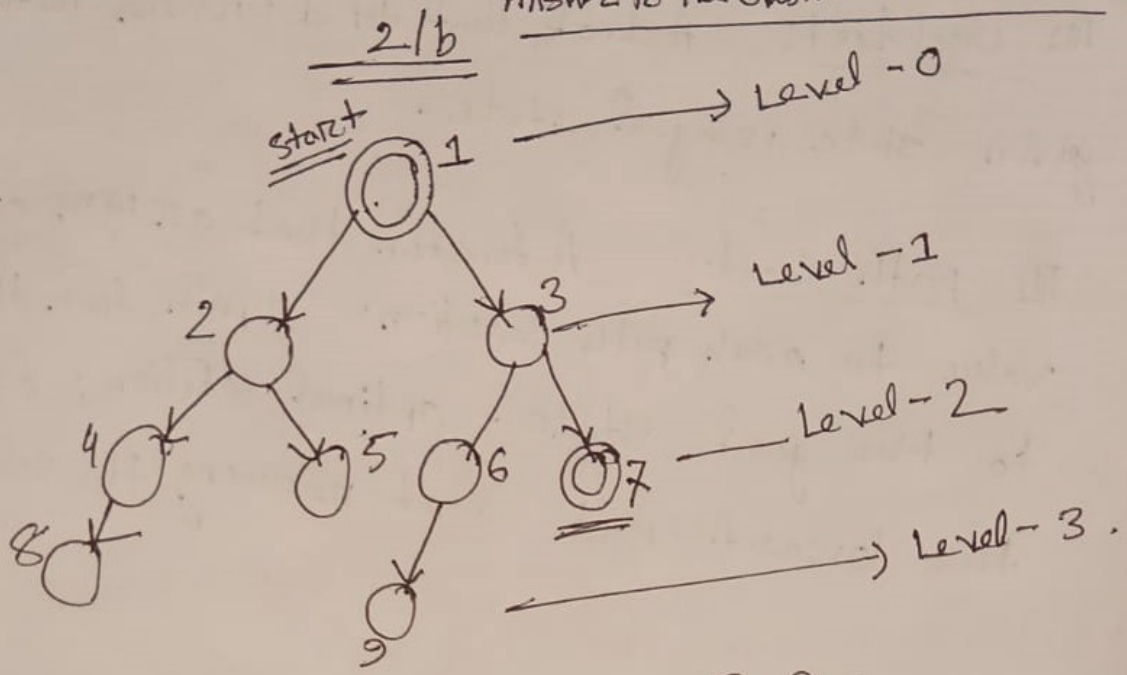 2/b
start
1
Level - 0
2
3
Level - 1
4
5
6
7
Level - 2
8
9
Level - 3 .